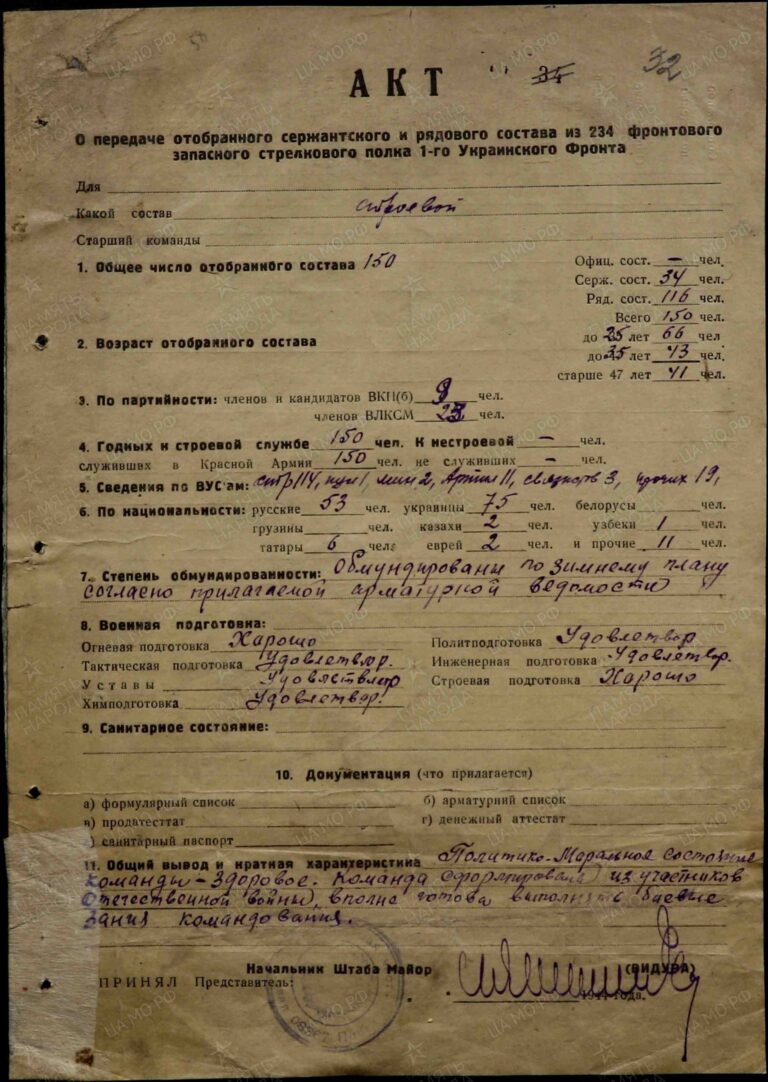 АКТ 35 32
О передаче отобранного сержантского и рядового состава из 234 фронтового
запасного стрелкового полка 1-го Украинского Фронта
Для
Какой состав строевой
Старший команды
1. Общее число отобранного состава 150
Офиц. сост. — чел.
Серж. сост. 34 чел.
Ряд. сост. 116 чел.
Всего 150 чел.
2. Возраст отобранного состава
до 25 лет 66 чел
до 35 лет 43 чел.
старше 47 лет 41 чел.
3. По партийности: членов и кандидатов ВКП(б) 9 чел.
членов ВЛКСМ 23 чел.
4. Годных к строевой службе 150 чел. К нестроевой — чел.
служивших в Красной Армии 150 чел. не служивших — чел.
5. Сведения по ВУС'ам: стр 114, пул 1, мин 2, Артил 11, связистов 3, прочих 19,
6. По национальности: русские 53 чел. украинцы 75 чел. белорусы чел.
грузины чел. казахи 2 чел. узбеки 1 чел.
татары 6 чел. евреи 2 чел. и прочие 11 чел.
7. Степень обмундированности: Обмундированы по зимнему плану
согласно прилагаемой арматурной ведомости
8. Военная подготовка:
Огневая подготовка Харошо Политподготовка Удовлетвор
Тактическая подготовка Удовлетвор. Инженерная подготовка Удовлетвор.
Уставы Удовлетвор Строевая подготовка Харошо
Химподготовка Удовлетвор.
9. Санитарное состояние:
10. Документация (что прилагается)
а) формулярный список б) арматурний список
в) продатесттат г) денежный аттестат
) санитарный паспорт
11. Общий вывод и краткая характеристика Политико-Моральное состояние
команды – Здоровое. Команда сформирована из участников
Отечественной войны, вполне готова выполнять боевые
задния командования.
Начальник Штаба Майор (ВИДУРА)
ПРИНЯЛ Представитель: года.